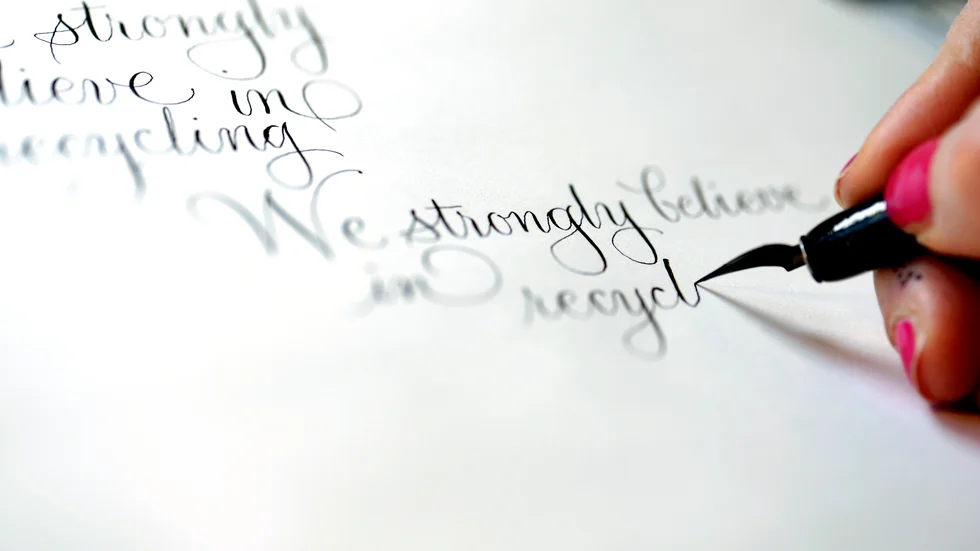 strongly
lieve in
recycling
We strongly believe
in recycl